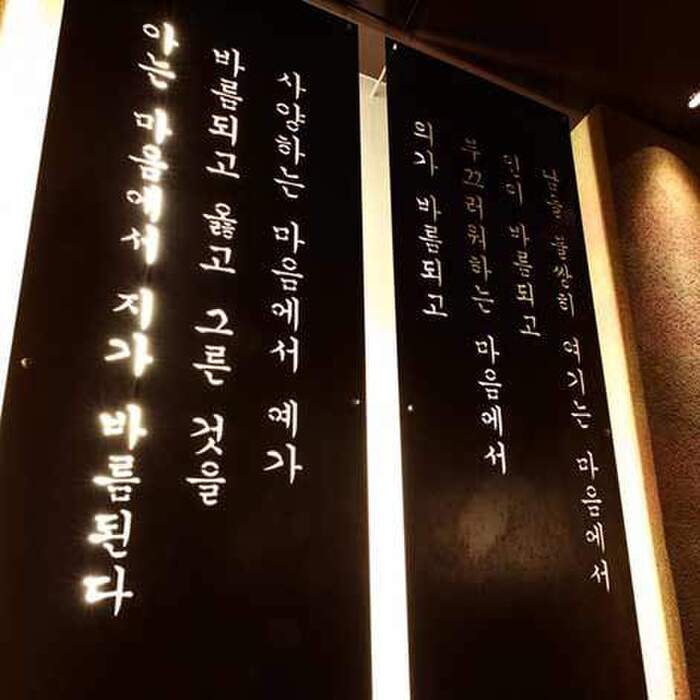 남을 불쌍히 여기는 마음에서
인이 바름되고
부끄러워하는 마음에서
의가 바름되고
사양하는 마음에서 예가
바름되고 옳고 그른 것을
아는 마음에서 지가 바름된다